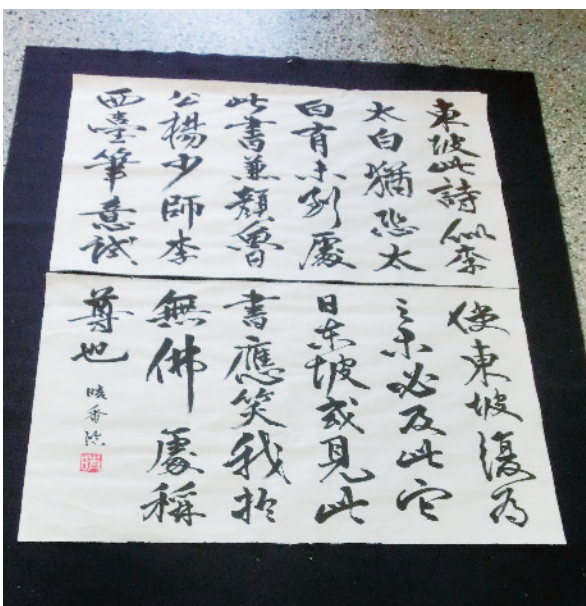 東坡此詩似李
太白猶恐太
白有未到處
此書兼顏魯
公楊少師李
西臺筆意試
使東坡復為
之未必及此它
日東坡或見此
書應笑我於
無佛處稱
尊也
香臨